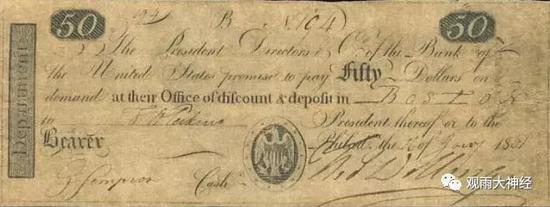 50 B No 104 50
The President Directors & Co. of the Bank of
the United States promise to pay Fifty Dollars on
demand at their Office of discount & deposit in Boston
to President thereof or to the
Bearer Philad. the of
Cash
观雨大神经